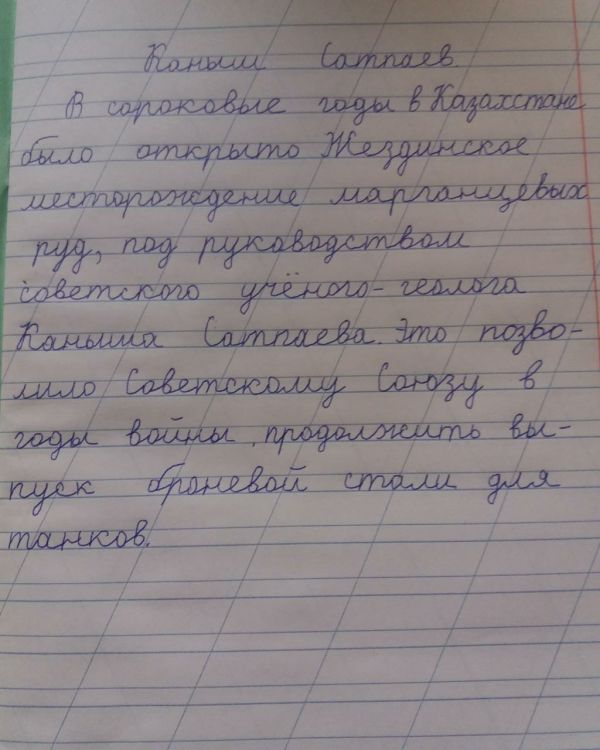 Каныш Сатпаев
В сороковые годы в Казахстане
было открыто Жездинское
месторождение марганцевых
руд, под руководством
советского учёного-геолога
Каныша Сатпаева. Это позво-
лило Советскому Союзу в
годы войны продолжить вы-
пуск броневой стали для
танков.